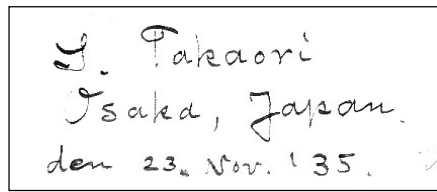 S. Takaori
Osaka, Japan.
den 23. Nov. '35.